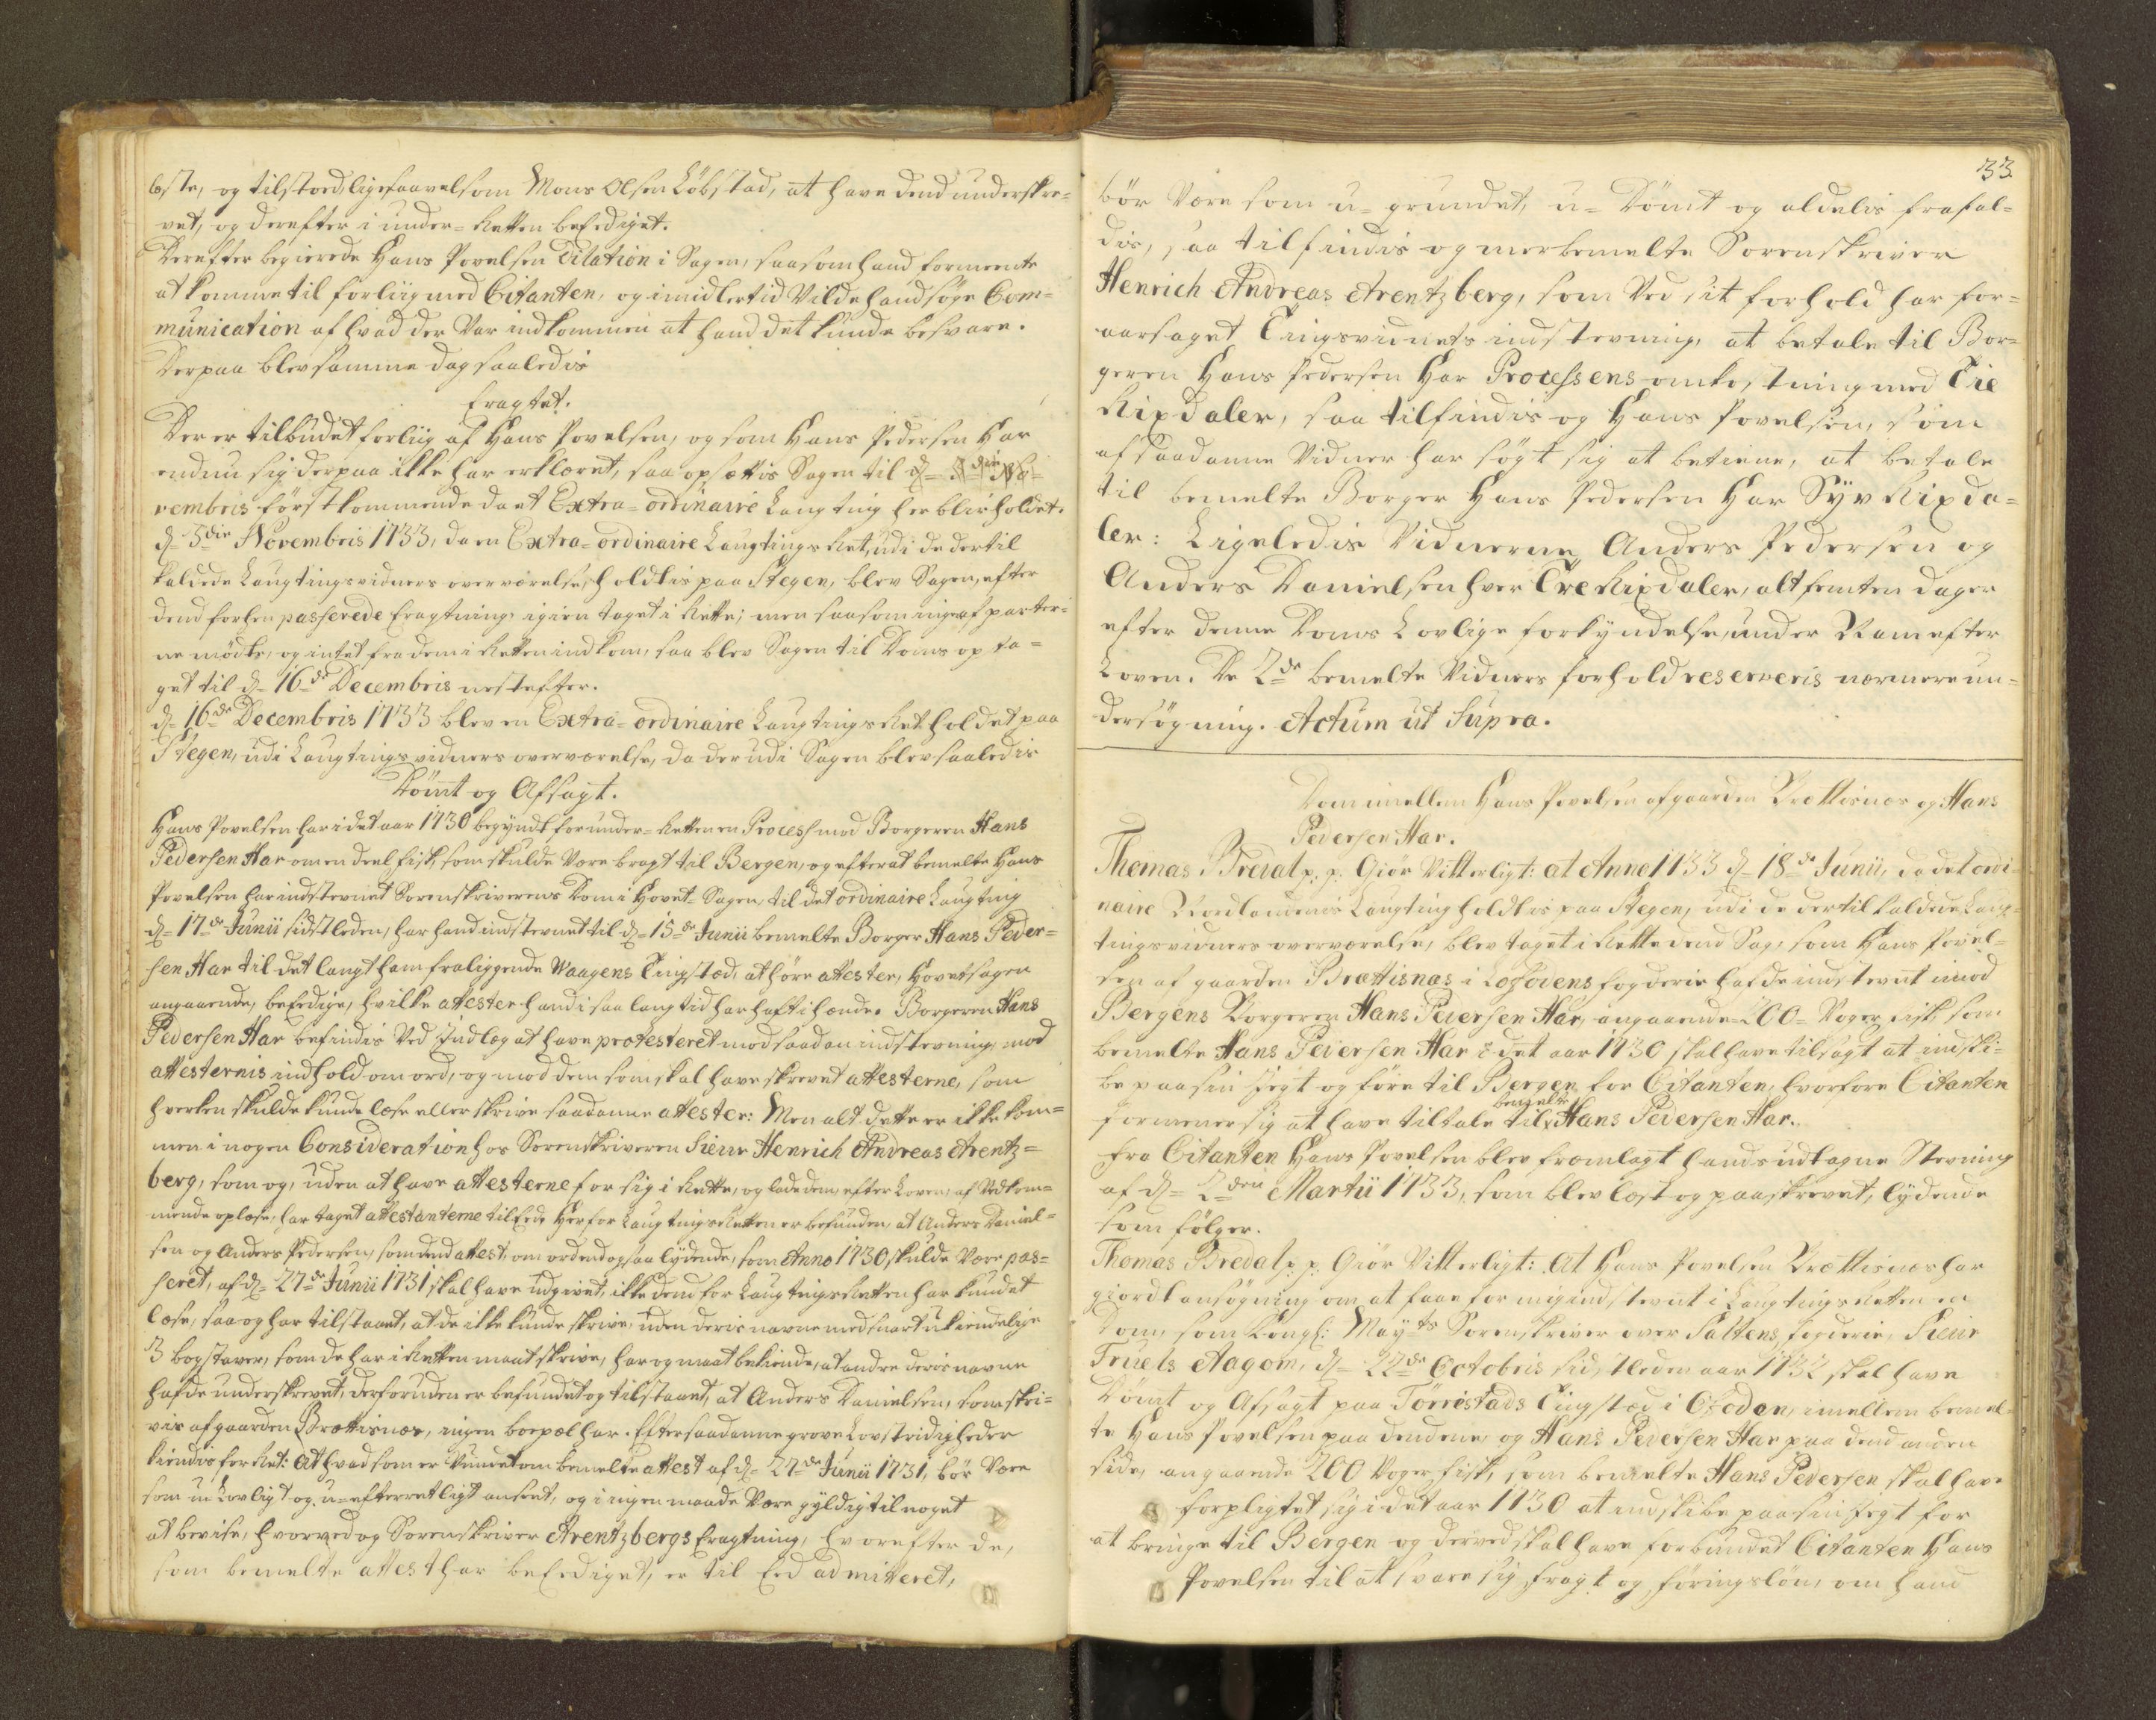 løste, og tilstoed ligesaavelsom Mons Olsen Løbstad, at have dend underskre=
vet, og derefter i under=Retten beEdiget.
Derefter begierede Hans Povelsen Dilation i Sagen, saasom hand formeente
at komme til forliig med Citanten, og imidlertid Vilde hand søge Com=
munication af hvad der Var indkommen at hand det kunde besvare.
Derpaa blev samme dag saaledis
Eragtet.
Der er tilbudet forliig af Hans Povelsen, og som Hans Pedersen Har
endnu sig derpaa ikke har erklæret, saa opsættis Sagen til d= 5die No=
vembris først kommende da et Extra=ordinaire Laugting her blir holdet.
d= 5die Novembris 1733, da en Extra=ordinaire Laugtings Ret, udi de dertil
kaldede Laugtingsvidners overværelse, holdtis paa Stegen, blev Sagen, efter
dend forhen passerede Eragtning, igien taget i Rette; men saasom ingen af parter=
ne mødte, og intet fra dem i Retten indkom, saa blev Sagen til Doms opta=
get til d= 16de Decembris nestefter.
d= 16de Decembris 1733 blev en Extra=ordinaire Laugtings Ret holdet paa
Stegen, udi Laugtings vidners overværelse, da der udi Sagen blev saaledis
Dømt og Afsagt.
Hans Povelsen har i det aar 1730 begyndt for under=Retten en Process mod Borgeren Hans
Pedersen Har om en deel fisk, som skulde Være bragt til Bergen, og efterat bemelte Hans
Povelsen har indstevnet Sorenskriverens Dom i Hovet=Sagen, til det ordinaire Laugting
d= 17de Junii sidstleden, har hand indstevnet til d= 15de Junii bemelte Borger Hans Peder=
sen Har til det langt ham fraliggende Waagens Tingsted, at høre attester, Hovetsagen
angaaende, beEdige, hvilke attester hand i saa lang tid har haft i hænde. Borgeren Hans
Pedersen Har befindis Ved Indlæg at have protesteret mod saadan indstevning, mod
attesternis indhold om ord, og mod dem som skal have skrevet attesterne, som
hverken skulde kunde læse eller skrive saadanne attester: Men alt dette er ikke kom=
men i nogen Consideration hos Sorenskriveren Sieur Henrich Andreas Arentz=
berg, som og, uden at have attesterne for sig i Rette, og lade dem, efter Loven, af Vedkom=
mende oplæse, har taget attestanterne til Eed. Her for Laugtings Retten er befunden, at Anders Daniel=
sen og Anders Pedersen, som dend attest, om ord end ogsaa lydende, som Anno 1730 skulde Være pas=
seret, af d= 27de Junii 1731 skal have udgivet, ikke dend for Laugtings Retten har kundet
læse, saa og har tilstaaet, at de ikke kunde skrive, uden deris navne med snart ukiendelige
3 bogstaver, som de har i Retten maat skrive, har og maat bekiende, at andre deris navne
hafde underskrevet, desforuden er befundet og tilstaaet, at Anders Danielsen, som skri=
vis af gaarden Brættisnæs, ingen boepæl har. Efter saadanne grove Lovstridigheder
kiendis for Ret: At hvad som er Vundet om bemelte attest af d= 27de Junii 1731, bør Være
som u=Lovligt og u=efterretligt anseet, og i ingen maade Være gyldig til noget
at bevise, hvorved og Sorenskriver Arentzbergs Eragtning, hvorefter de,
som bemelte attest har beEdiget, er til Eed admitteret,
33.
bør Være som u=grundet, u=Dømt og aldelis frafal=
dis, saa tilfindis og merbemelte Sorenskriver
Henrich Andreas Arentzberg, som Ved sit forhold har for=
aarsaget Tingsvidnets indstevning, at betale til Bor=
geren Hans Pedersen Har Processens omkostning med Tie
Rixdaler, saa tilfindis og Hans Povelsen, som
af saadanne Vidner har søgt sig at betiene, at betale
til bemelte Borger Hans Pedersen Har Syv Rixda=
ler: Ligeledis Vidnerne Anders Pedersen og
Anders Danielsen hver Tre Rixdaler, alt femten dager
efter denne Doms Lovlige forkyndelse, under Nam efter
Loven. De 2de bemelte Vidners forhold reserveris nærmere un=
dersøgning. Actum ut Supra.
Dom imellem Hans Povelsen af gaarden Brettisnæs og Hans
Pedersen Har.
Thomas Bredal p. p. Giør Vitterligt: at Anno 1733 d= 18de Junii, da det ordi=
naire Nordlandenis Laugting holdtis paa Stegen, udi de dertil kaldede Laug=
tingsvidners overværelse, blev taget i Rette dend Sag, som Hans Povel=
sen af gaarden Brættisnæs i Lofodens fogderie hafde indstevnt imod
Bergens Borgeren Hans Pedersen Har, angaaende 200 Voger fisk, som
bemelte Hans Pedersen Har i det aar 1730 skal have tilsagt at indski=
be paa sin Jegt og føre til Bergen for Citanten, hvorfore Citanten
formener sig at have tiltale til bemelte Hans Pedersen Har.
Fra Citanten Hans Povelsen blev fremlagt hands udtagne Stevning
af d= 2den Martii 1733, som blev læst og paaskrevet, lydende
som følger.
Thomas Bredal p. p. Giør Vitterligt: At Hans Povelsen Brættisnæs har
giordt ansøgning om at faae for mig indstevnt i Laugtings Retten en
Dom, som Kongl: Mayts Sorenskriver over Saltens fogderie, Sieur
Truels Aagom, d= 22de Octobris sidstleden aar 1732 skal have
Dømt og Afsagt paa Tørrestads Tingsted i Ofoden, imellem bemel=
te Hans Povelsen paa dend ene, og Hans Pedersen Har paa dend anden
side, angaaende 200 Voger fisk, som bemelte Hans Pedersen skal have
forpligtet sig i det aar 1730 at indskibe paa sin Jegt for
at bringe til Bergen og derved skal have forbundet Citanten Hans
Povelsen til at svare sig fragt og føringsløn, om hand